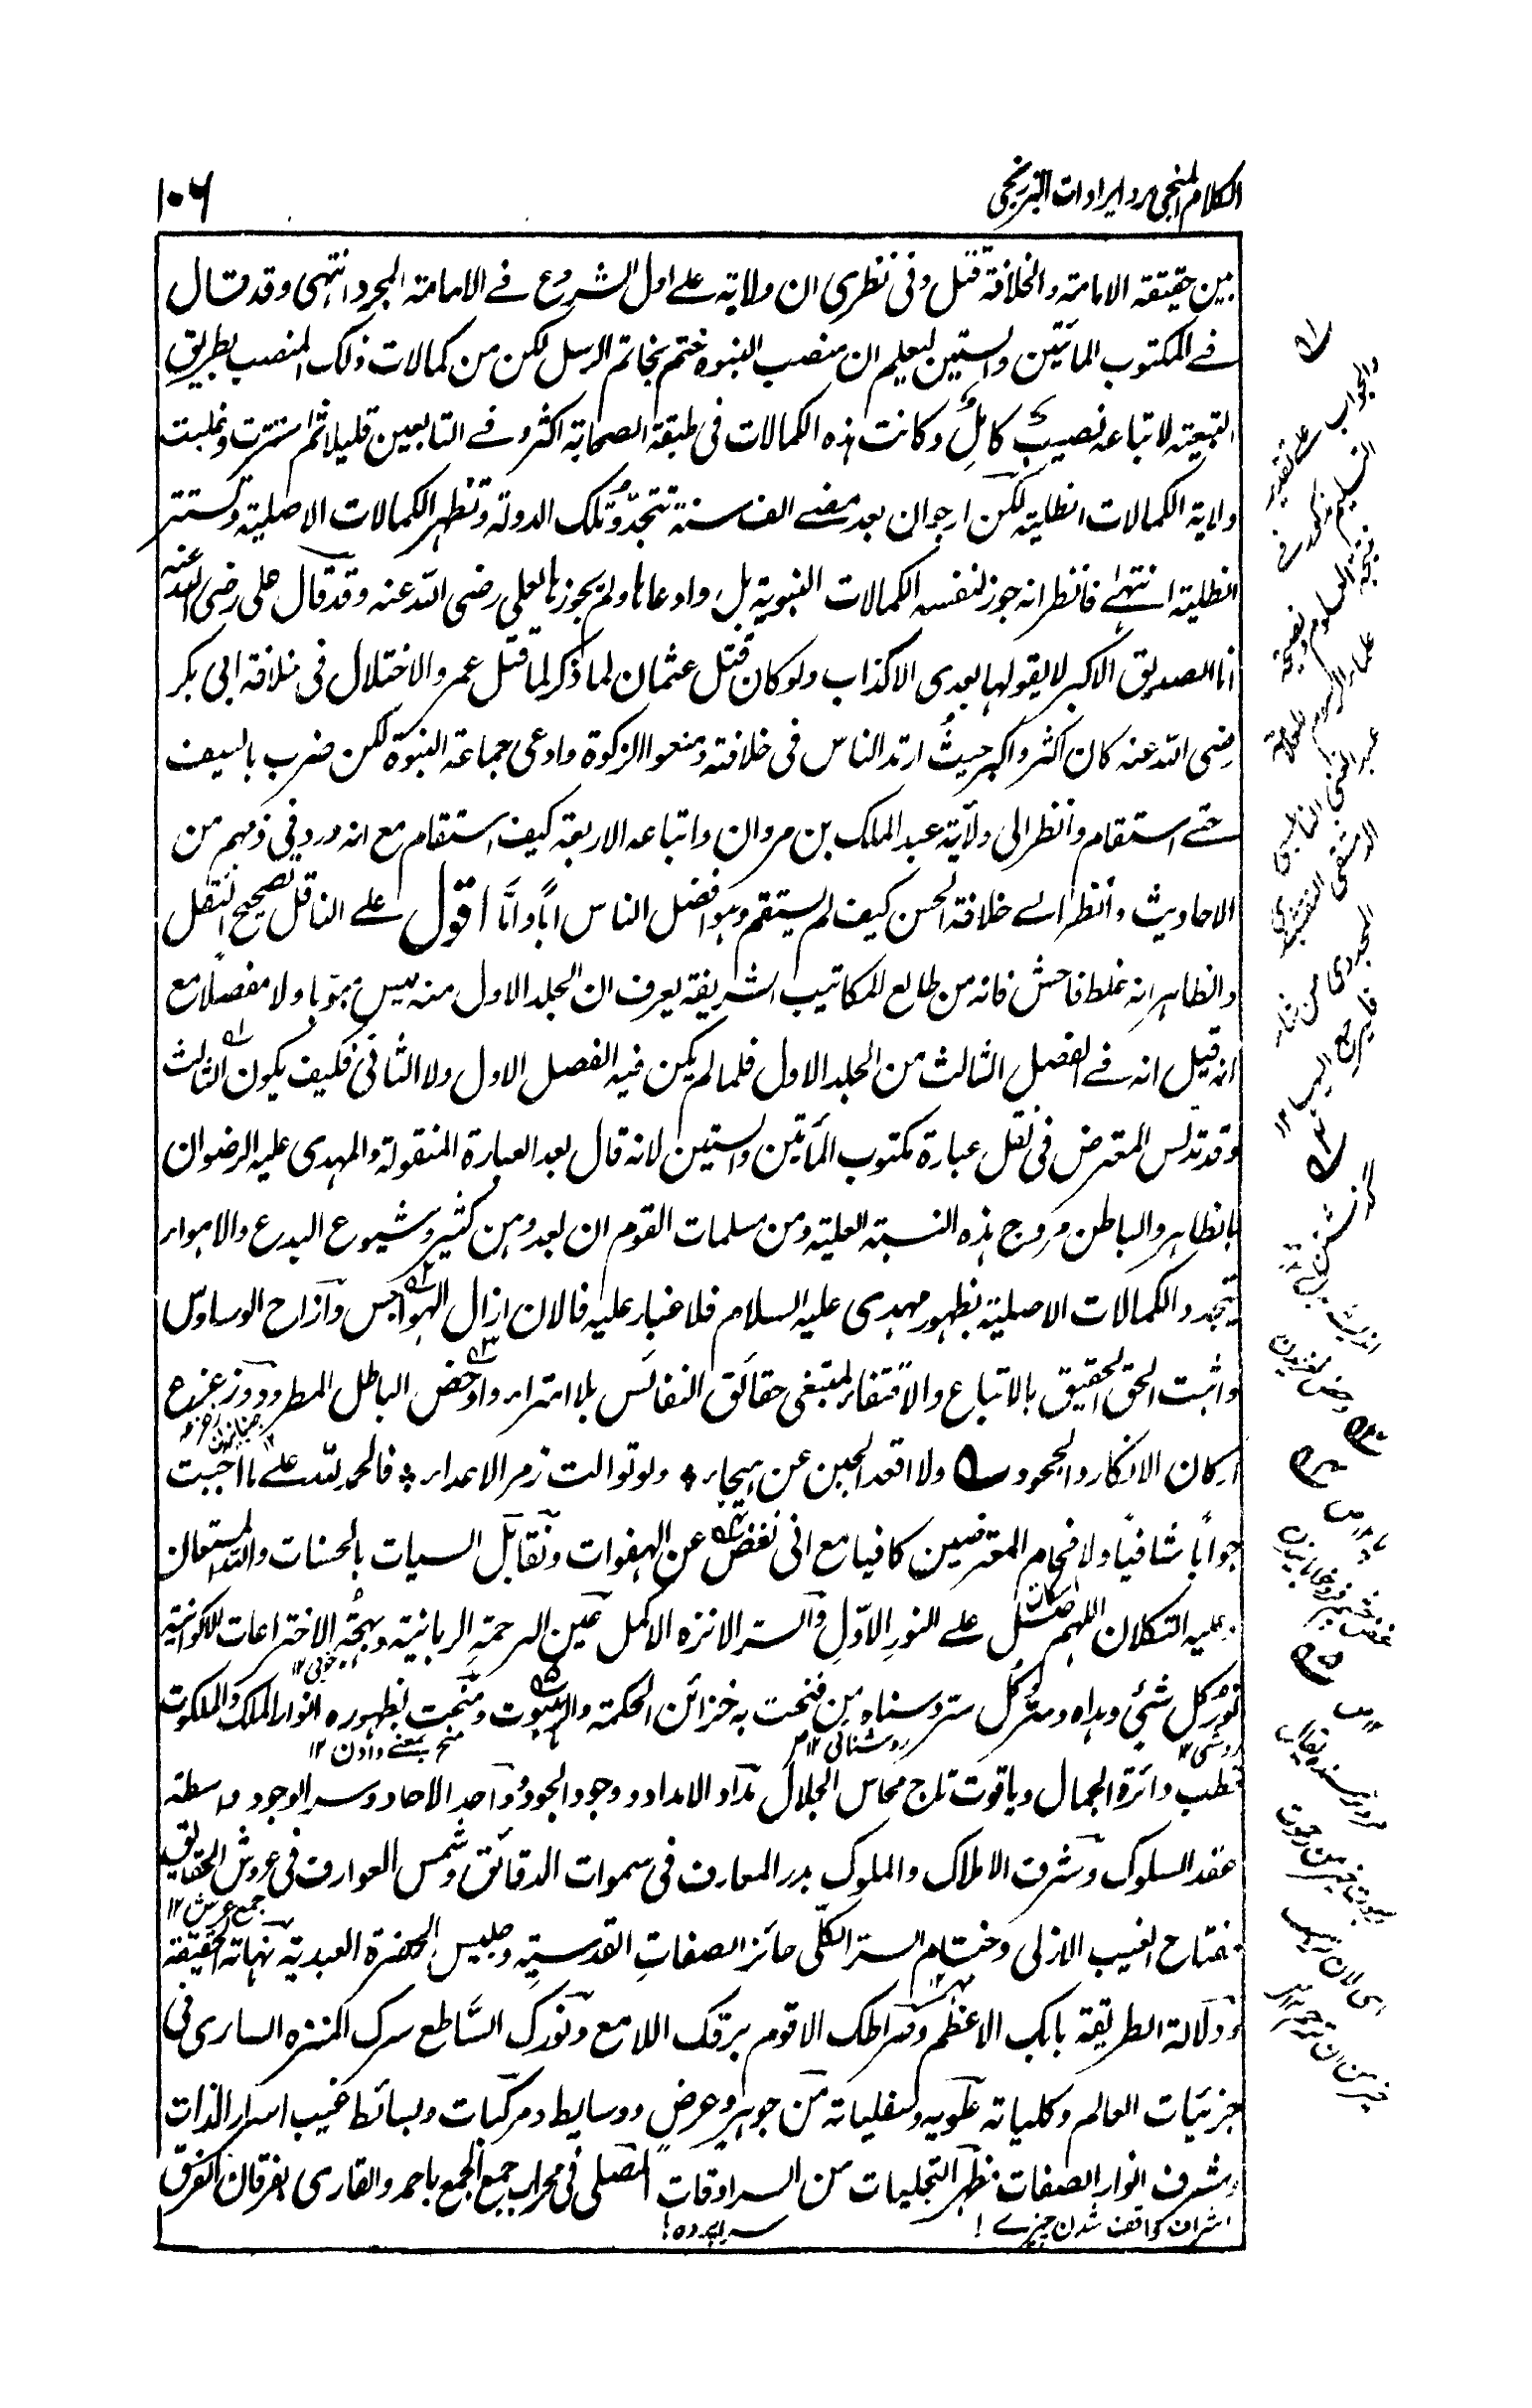 الكلام المنجى برد ايرادات البرزنجى
١٠٦
بين حقيقة الامامة والخلافة قتل وفى نظرى ان ولاية على اول الشروع فى الامامة المجردة انتهى وقد قال
فى المكتوب المأتين والستين ليعلم ان منصب النبوة ختم بخاتم الرسل لكن من كمالات ذلك المنصب بطريق
التبعية لاتباعه نصيب كامل وكانت هذه الكمالات فى طبقة الصحابة اكثر وفى التابعين قليلا ثم استترت وغلبت
ولاية الكمالات الظلية لكن ارجو ان بعد مضى الف سنة تتجدد تلك الدولة وتظهر الكمالات الاصلية وتستتر
الظلية انتهى فانظر انه جوز لنفسه الكمالات النبوية بل وادعاها ولم يجوزها لعلى رضى الله عنه وقد قال على رضى الله عنه
انا الصديق الاكبر لا يقولها بعدى الا كذاب ولو كان قتل عثمان لما ذكر لما قتل عمر والاختلال فى خلافة ابى بكر
رضى الله عنه كان اكثر واكبر حيث ارتد الناس فى خلافته ومنعوا الزكوة وادعى جماعة النبوة لكن ضرب بالسيف
حتى استقام وانظر الى ولاية عبد الملك بن مروان واتباعه الاربعة كيف استقام مع انه ورد فى ذمهم من
الاحاديث وانظر الى خلافة الحسن كيف لم يستقم وهو افضل الناس ابًا وامًّا اقول على الناقل تصحيح النقل
والظاهر انه غلط فاحش فانه من طالع للمكاتيب الشريفة يعرف ان الجلد الاول منه ليس مبوّبا ولا مفصلا مع
انه قيل انه فى الفصل الثالث من الجلد الاول فلما لم يكن فيه الفصل الاول ولا الثانى فكيف يكون الثالث
وقد تدلس المعترض فى نقل عبارة مكتوب المأتين والستين لانه قال بعد العبارة المنقولة والمهدى عليه الرضوان
بالظاهر والباطن مروج هذه النسبة العلية ومن مسلمات القوم ان بعد وهن كثير وشيوع البدع والاهواء
يتجدد الكمالات الاصلية بظهور مهدى عليه السلام فلا غبار عليه فالان ازال الهواجس وازاح الوساوس
واثبت الحق الحقيق بالاتباع والاقتفاء لمبتغى حقائق النفائس بلا امتراء وادحض الباطل المطرود وزعزع
اركان الانكار والجحود ولا اقعد الجبن عن الهيجاء ولو توالت زمر الاعداء فالحمد لله على ما اجبت
جوابًا شافيًا ولافحام المعترضين كافيا مع انى نغض عن الهفوات ونقابل السيات بالحسنات والله المستعان
وعليه التكلان اللهم صل على النور الاول والسر الانزه الاكمل عين الرحمة الربانية وبهجة الاختراعات الاكوانية
نور كل شئى وهداه وسر كل سر وسناه من فتحت به خزائن الحكمة والرهبوت ومنحت بظهوره انوار الملك والملكوت
روشنى ١٢ روشنائى ١٢ منح بمعنى دادن ١٢
قطب دائرة الجمال وياقوت تاج محاسن الجلال مداد الامداد ووجود الجود وواحد الاحاد وسر الوجود واسطة
عقد السلوك وشرف الاملاك والملوك بدر المعارف فى سموات الدقائق وشمس العوارف فى عروش الحقائق
جمع عرش ١٢
مفتاح الغيب الازلى وختام السر الكلّى حائز الصفات القدسية وجليس الحضرة العبدية نهاية الحقيقة
ودلالة الطريقة بابك الاعظم وصراطك الاقوم برقك اللامع ونورك الساطع سرك المنزه السارى فى
جزئيات العالم وكلياته علويه وسفلياته من جوهر وعرض ووسايط ومركبات وبسائط غيب اسرار الذات
ومشرف انوار الصفات مظهر التجليات من السرادقات المصلى فى محراب جمع الجمع باحمد والقارى بفرقان الفرق
اشراف واقف شدن چيزے سراپرده